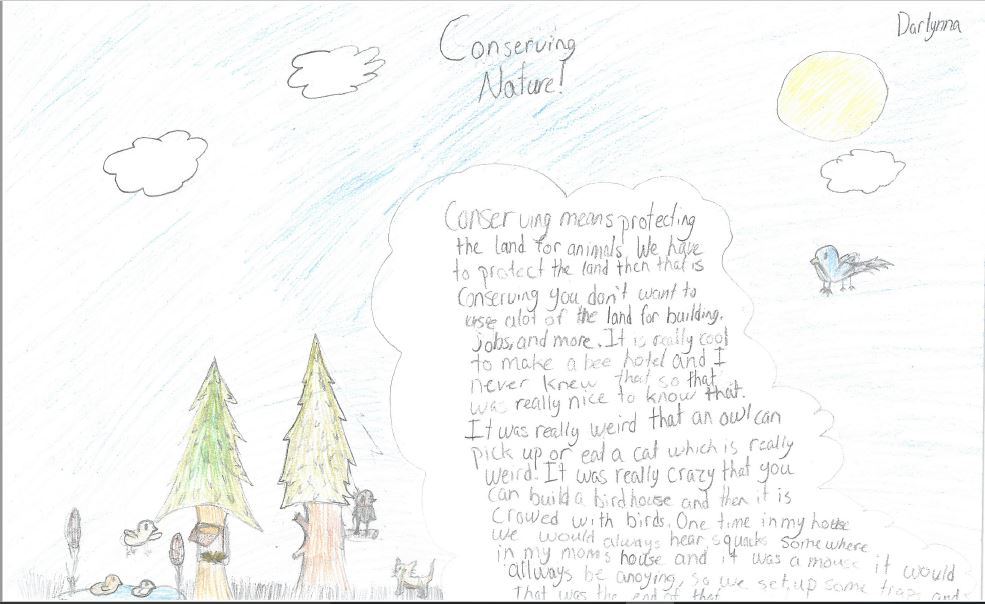 Darlynna
Conserving
Nature!
Conserving means protecting
the land for animals. We have
to protect the land then that is
Conserving you don't want to
use alot of the land for building,
jobs, and more. It is really cool
to make a bee hotel and I
never knew that so that
was really nice to know that.
It was really weird that an owl can
pick up or eat a cat which is really
weird. It was really crazy that you
can build a birdhouse and then it is
Crowed with birds. One time in my house
we would always hear squacks somewhere
in my moms house and it was a mouse it would
allways be anoying, so we set up some traps and
That was the end of that